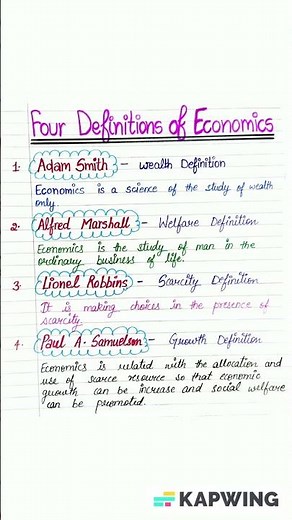 Four Definitions of Economics
1. Adam Smith - Wealth Definition
Economics is a science of the study of wealth
only.
2. Alfred Marshall - Welfare Definition
Economics is the study of man in the
ordinary business of life.
3. Lionel Robbins - Scarcity Definition
It is making choices in the presence of
scarcity.
4. Paul A. Samuelson - Growth Definition
Economics is related with the allocation and
use of scarce resource so that economic
growth can be increase and social welfare
can be promoted.
KAPWING